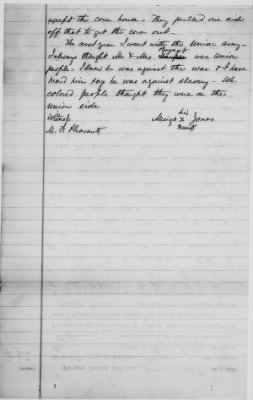 except the corn house - they pulled one side
off that to get the corn out.
The next year I went with the Union army -
I always thought Mr & Mrs Bryant was Union
people - I know he was against the war & I have
heard him say he was against slavery - We
colored people thought they were on the
Union side
his
Mingo x Jones
mark
M. F. Pleasants